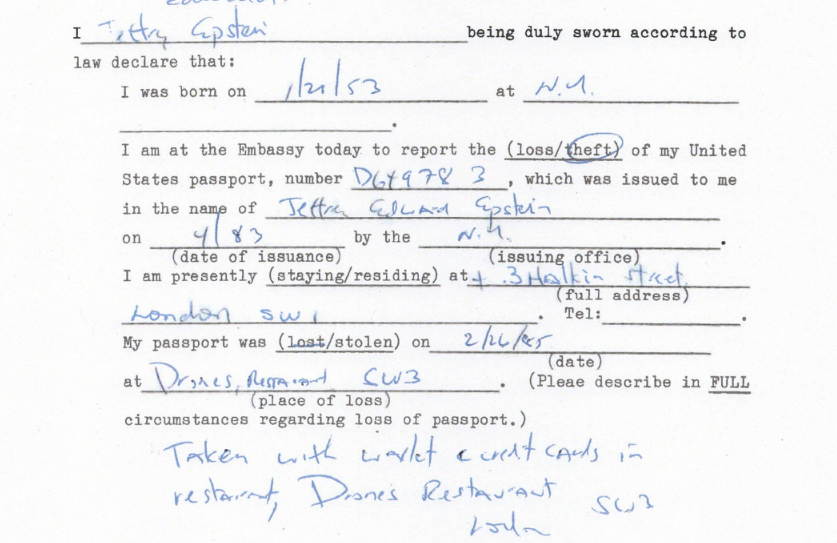 I Jeffrey Epstein being duly sworn according to
law declare that:
I was born on 1/21/53 at N.Y.
I am at the Embassy today to report the (loss/theft) of my United
States passport, number , which was issued to me
in the name of Jeffrey Edward Epstein
on 4/83 by the N.Y.
(date of issuance) (issuing office)
I am presently (staying/residing) at 3 Halkin Street
(full address)
London SW1 . Tel: .
My passport was (lost/stolen) on 2/26/85
(date)
at Drones, Restaurant SW3 . (Pleae describe in FULL
(place of loss)
circumstances regarding loss of passport.)
Taken with wallet credit cards in
restaurant, Drones Restaurant
SW3
London